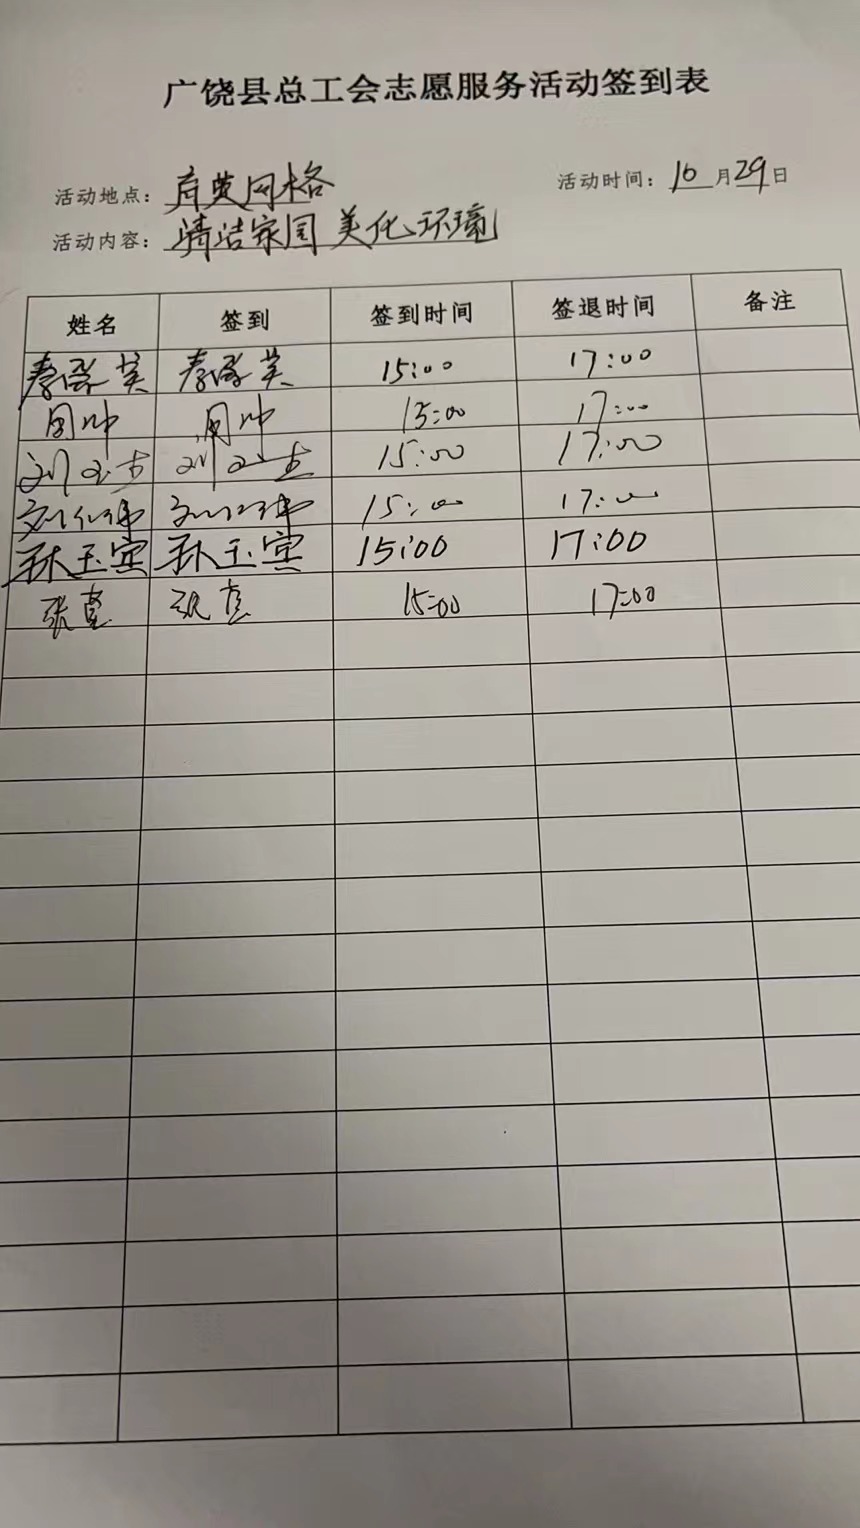 广饶县总工会志愿服务活动签到表
活动地点：育英网格 活动时间：10月29日
活动内容：清洁家园 美化环境
姓名 签到 签到时间 签退时间 备注
秦啓英 秦啓英 15:00 17:00
周帅 周帅 15:00 17:00
刘 刘 15:00 17:00
刘 刘 15:00 17:00
孙玉宾 孙玉宾 15:00 17:00
张 张 15:00 17:00